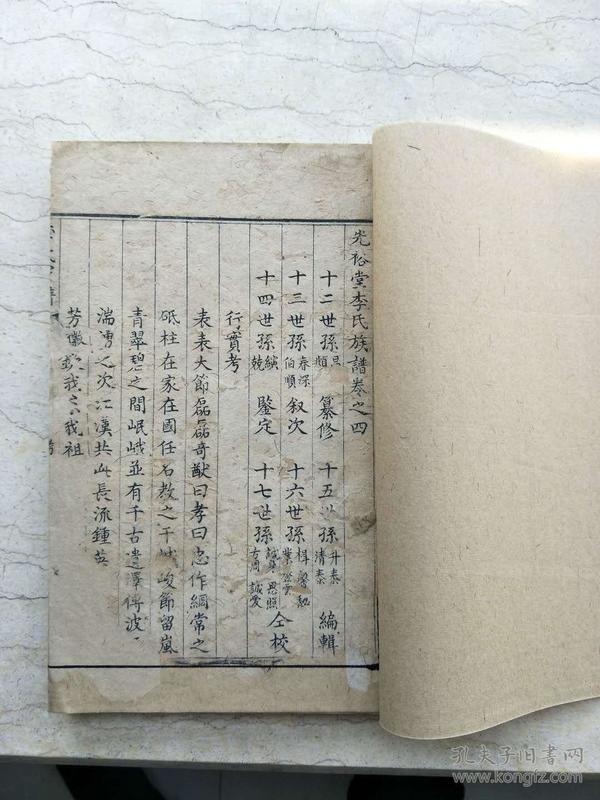 光裕堂李氏族譜卷之四
十二世孫 旦 纂修 十五世孫 升泰 清泰 編輯
十三世孫 春深 伯順 叙次 十六世孫
十四世孫 競 鑒定 十七世孫 誠愛 仝校
行實考
表表大節磊磊奇猷曰孝曰忠作綱常之
砥柱在家在國任名教之干城峻節留嵐
青翠碧之間岷峨並有千古遺澤傳波
湍湧之次江漢共此長流鍾英
芳徽 我 我祖
孔夫子旧书网
www.kongfz.com